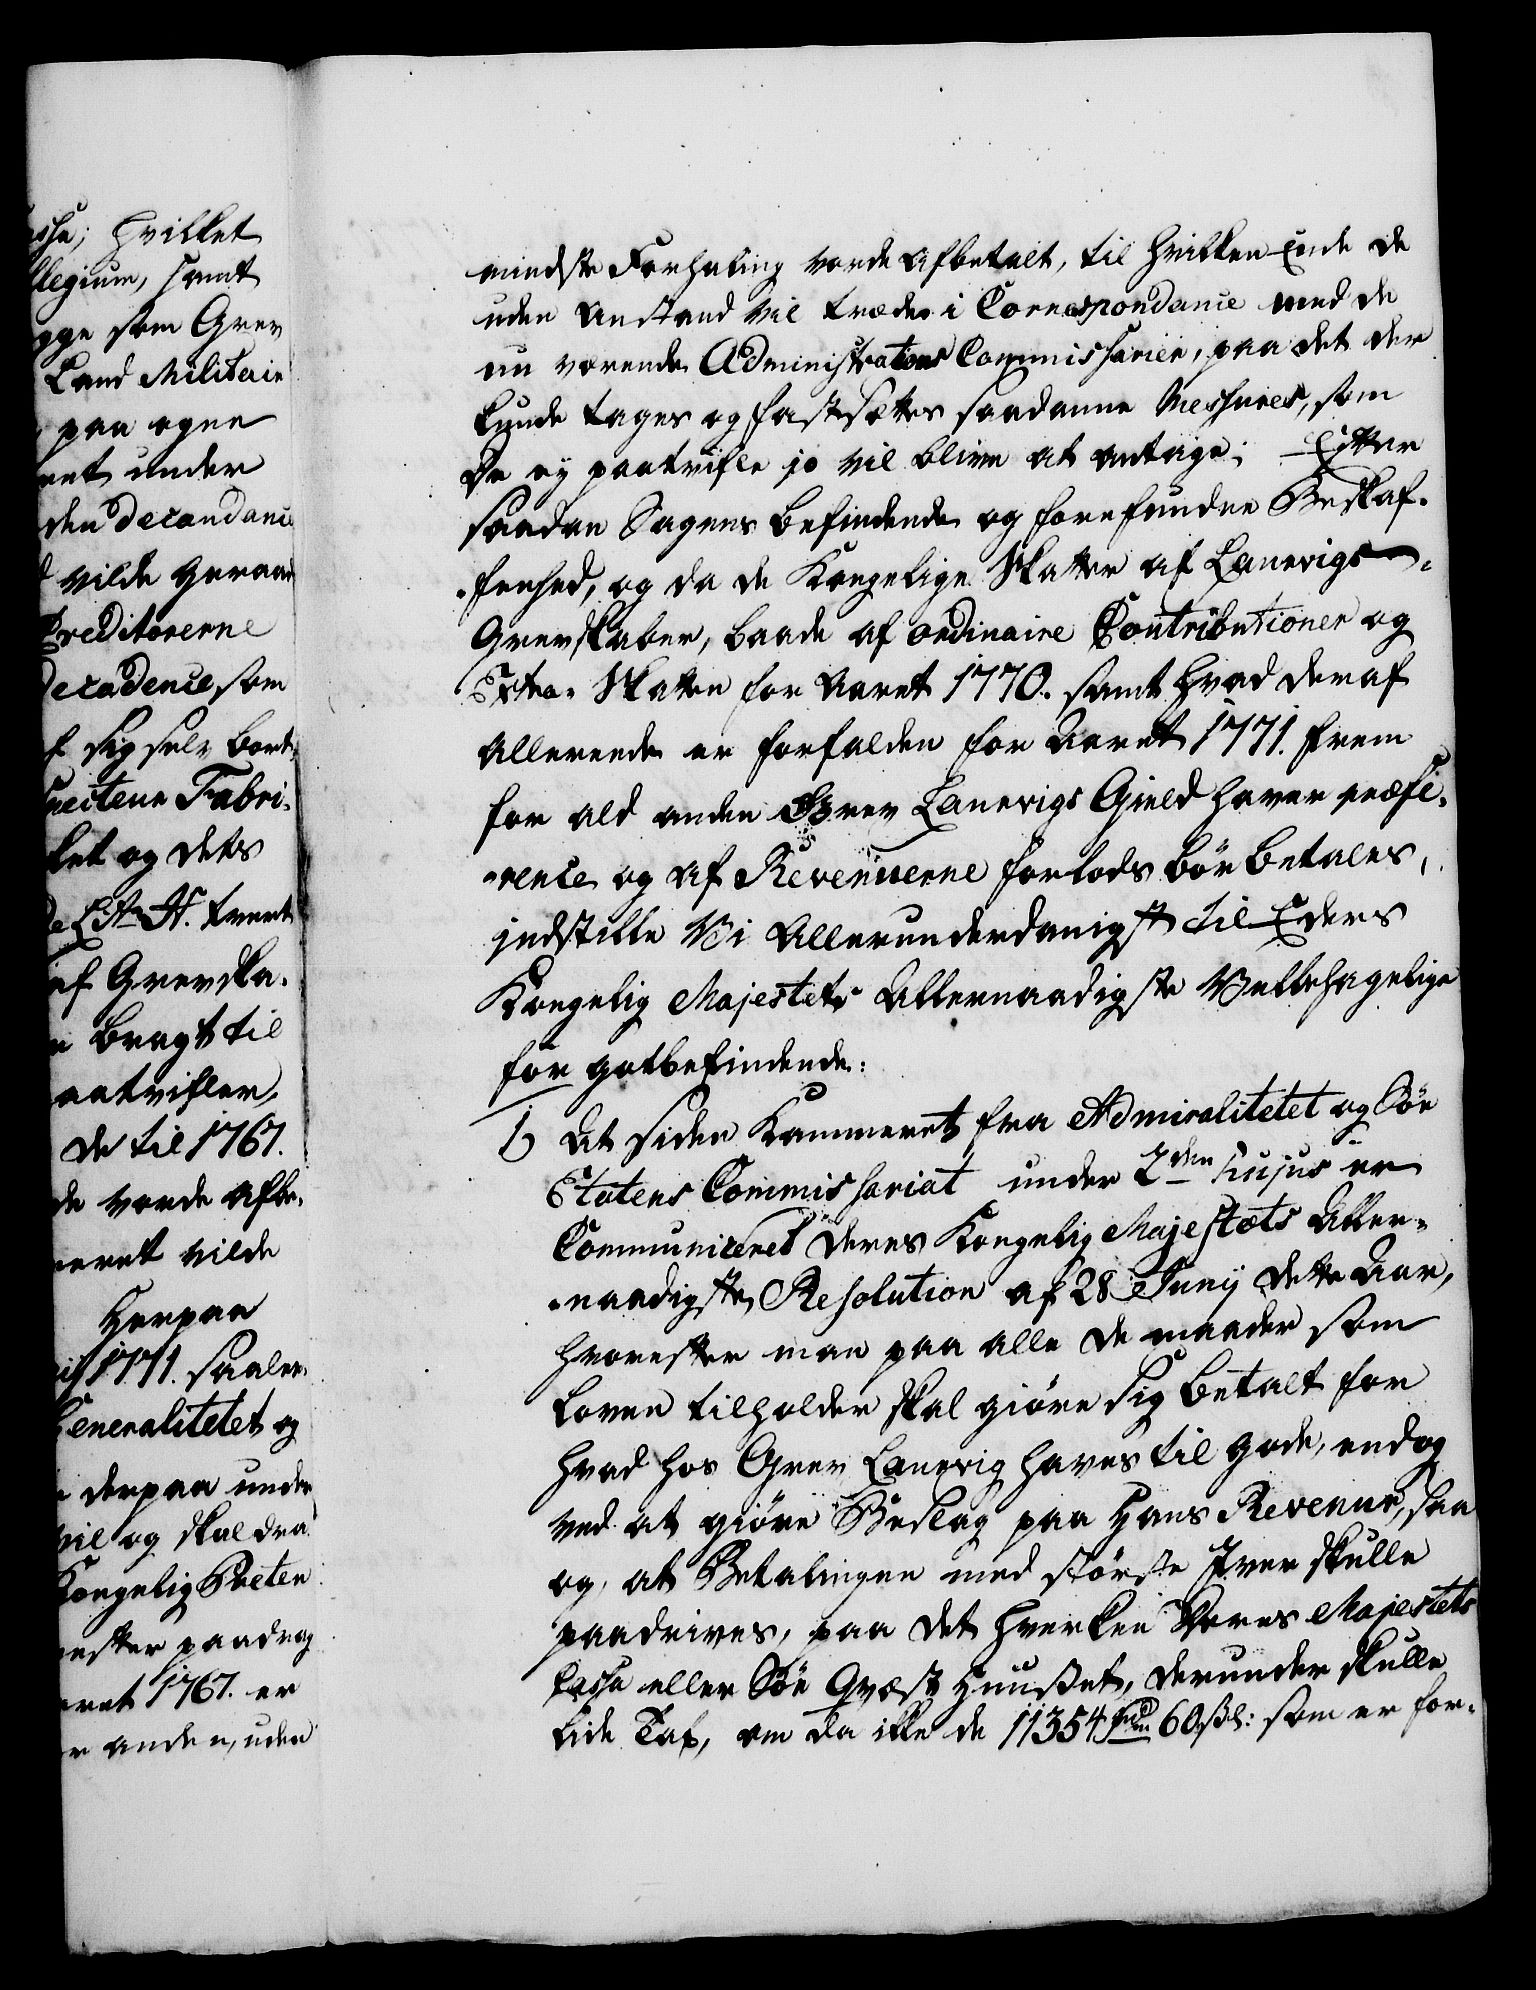 asse; hvilket
llegium, samt
ygge som Grev
Land Militair
paa egne
ret under
den decaudance
vilde geraa
Creditorerne
Decadence som
sig selv bort
Fabri-
ket og dets
tvert
af Grevska-
bragt til
aatvifler,
de til 1767.
de vorde afbe-
neret vilde
Herpaa
1771. saale-
Generalitetet og
derpaa under
vil og skal dra
Kongelig Præten
efter paadrag
aret 1767. er
r anden, uden
mindste Forhaling vorde afbetalt, til hvilken Ende de
uden Anstand vil træde i Correspondance med de
nu værende Administrations Commissarier, paa det der
kunde tages og fastsættes saadanne Messures, som
De ey paatvifle jo vil blive at antage; Efter
saadan Sagens befindende og forefunden Beskaf-
-fenhed, og da de Kongelige Skatter af Laurvigs-
Grevskaber, baade af ordinaire Contributioner og
Extra- Skatten for Aaret 1770. samt hvad deraf
allerede er forfalden for Aaret 1771. frem
for ald anden Grev Laurvigs Gield haver præfe-
-rence og af Revenuerne forlods bör betales,
indstille Vi Allerunderdanigst til Eders
Kongelig Majestets Allernaadigste Velbehagelige
for godtbefindende:
1) At siden Kammeret fra Admiralitetet og Söe
Etatens Commissariat under 2den hujus er
Communiceret Deres Kongelig Majestæts Aller-
-naadigste Resolution af 28 Junij dette Aar,
hvorefter man paa alle de maader som
Loven tilholder skal giöre sig betalt for
hvad hos Grev Laurvig haves til gode, endog
ved at giöre Beslag paa Hans Revenue, saa
og, at Betalingen med störste Iver skulle
paadrives, paa det hverken Deres Majestets
Casse eller Söe Qvæst Huuset, derunder skulle
lide Tab, om da ikke de 11354 rd 60 sk: som er for-